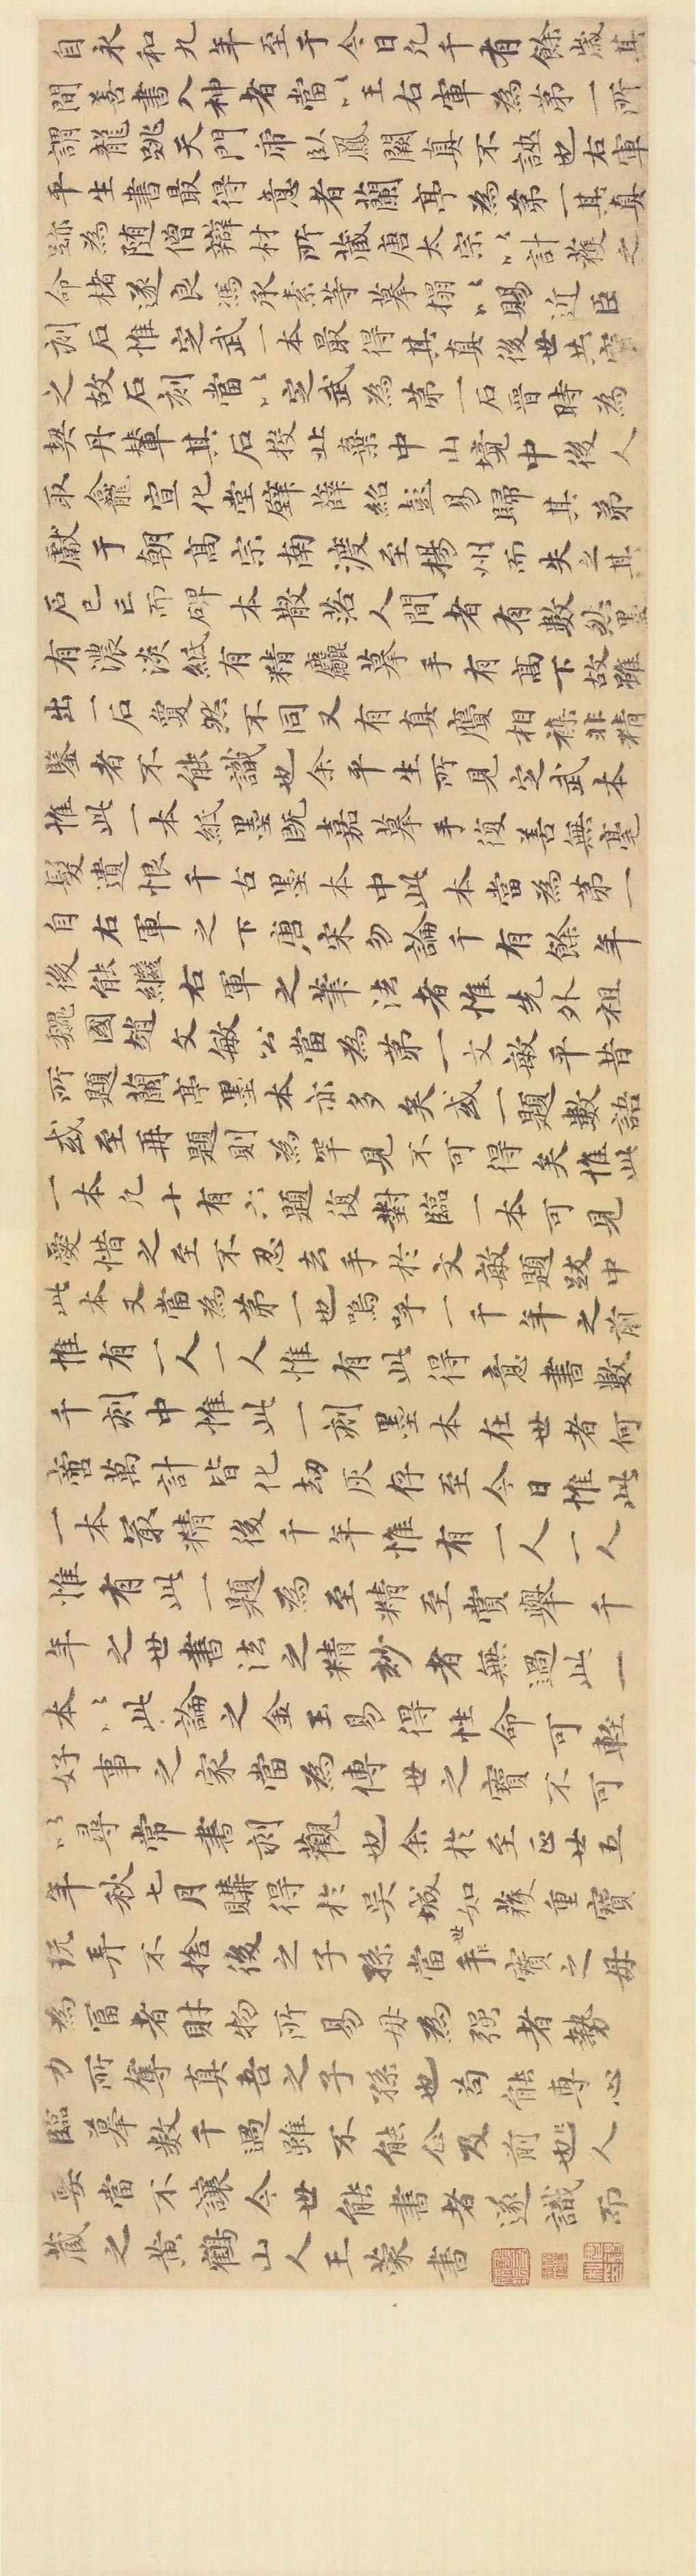 自永和九年至于今日凡千有餘歲其
間善書入神者當以王右軍為第一所
謂龍跳天門虎臥鳳闕真不誣也右軍
平生書最得意者蘭亭為第一其真
跡為隨僧辯材所藏唐太宗以計獲之
命楮遂良馮承素等摹搨以賜近臣
刻石惟定武一本最得其真後世共寶
之故石刻當以定武為第一石晉時為
契丹輦其石投北棄中山境中後人
取龕宣化堂壁薛紹彭易歸其弟
獻于朝高宗南渡至楊州而失之其
石已亡而碑本散落人間者有數然墨
有濃淡紙有精麤摹手有高下故雖
出一石敻然不同又有真贗相襍非精
鑒者不能識也余平生所見定武本
惟此一本紙墨既嘉摹手復善無毫
髮遺恨千古墨本中此本當為第一
自右軍之下唐宋勿論千有餘年
後能繼右軍之筆法者惟先外祖
魏國趙文敏公當為第一文敏平昔
所題蘭亭墨本亦多矣或一題數語
或至再題則為罕見不可得矣惟此
一本凡十有六題復對臨一本可見
愛惜之至不忍去手於文敏題跋中
此本又當為第一也嗚呼一千年之前
惟有一人一人惟有此得意書數
千刻中惟此一刻墨本在世者何
啻萬計皆化劫灰存至今日惟此
一本最精後千年惟有一人一人
惟有此一題為至精至賞舉千
年之世書法之精妙者無過此一
本以此論之金玉易得性命可輕
好事之家當為傳世之寶不可
以尋常書刻觀也余於至正廿五
年秋七月購得於吳城如獲重寶
玩弄不捨後之子孫當世寶之毋
為富者財物所易毋為强者勢
力所奪真吾之子孫也苟能專心
臨摹數千過雖不能企及前人
要當不讓今世能書者遂識而
藏之黃鶴山人王蒙書